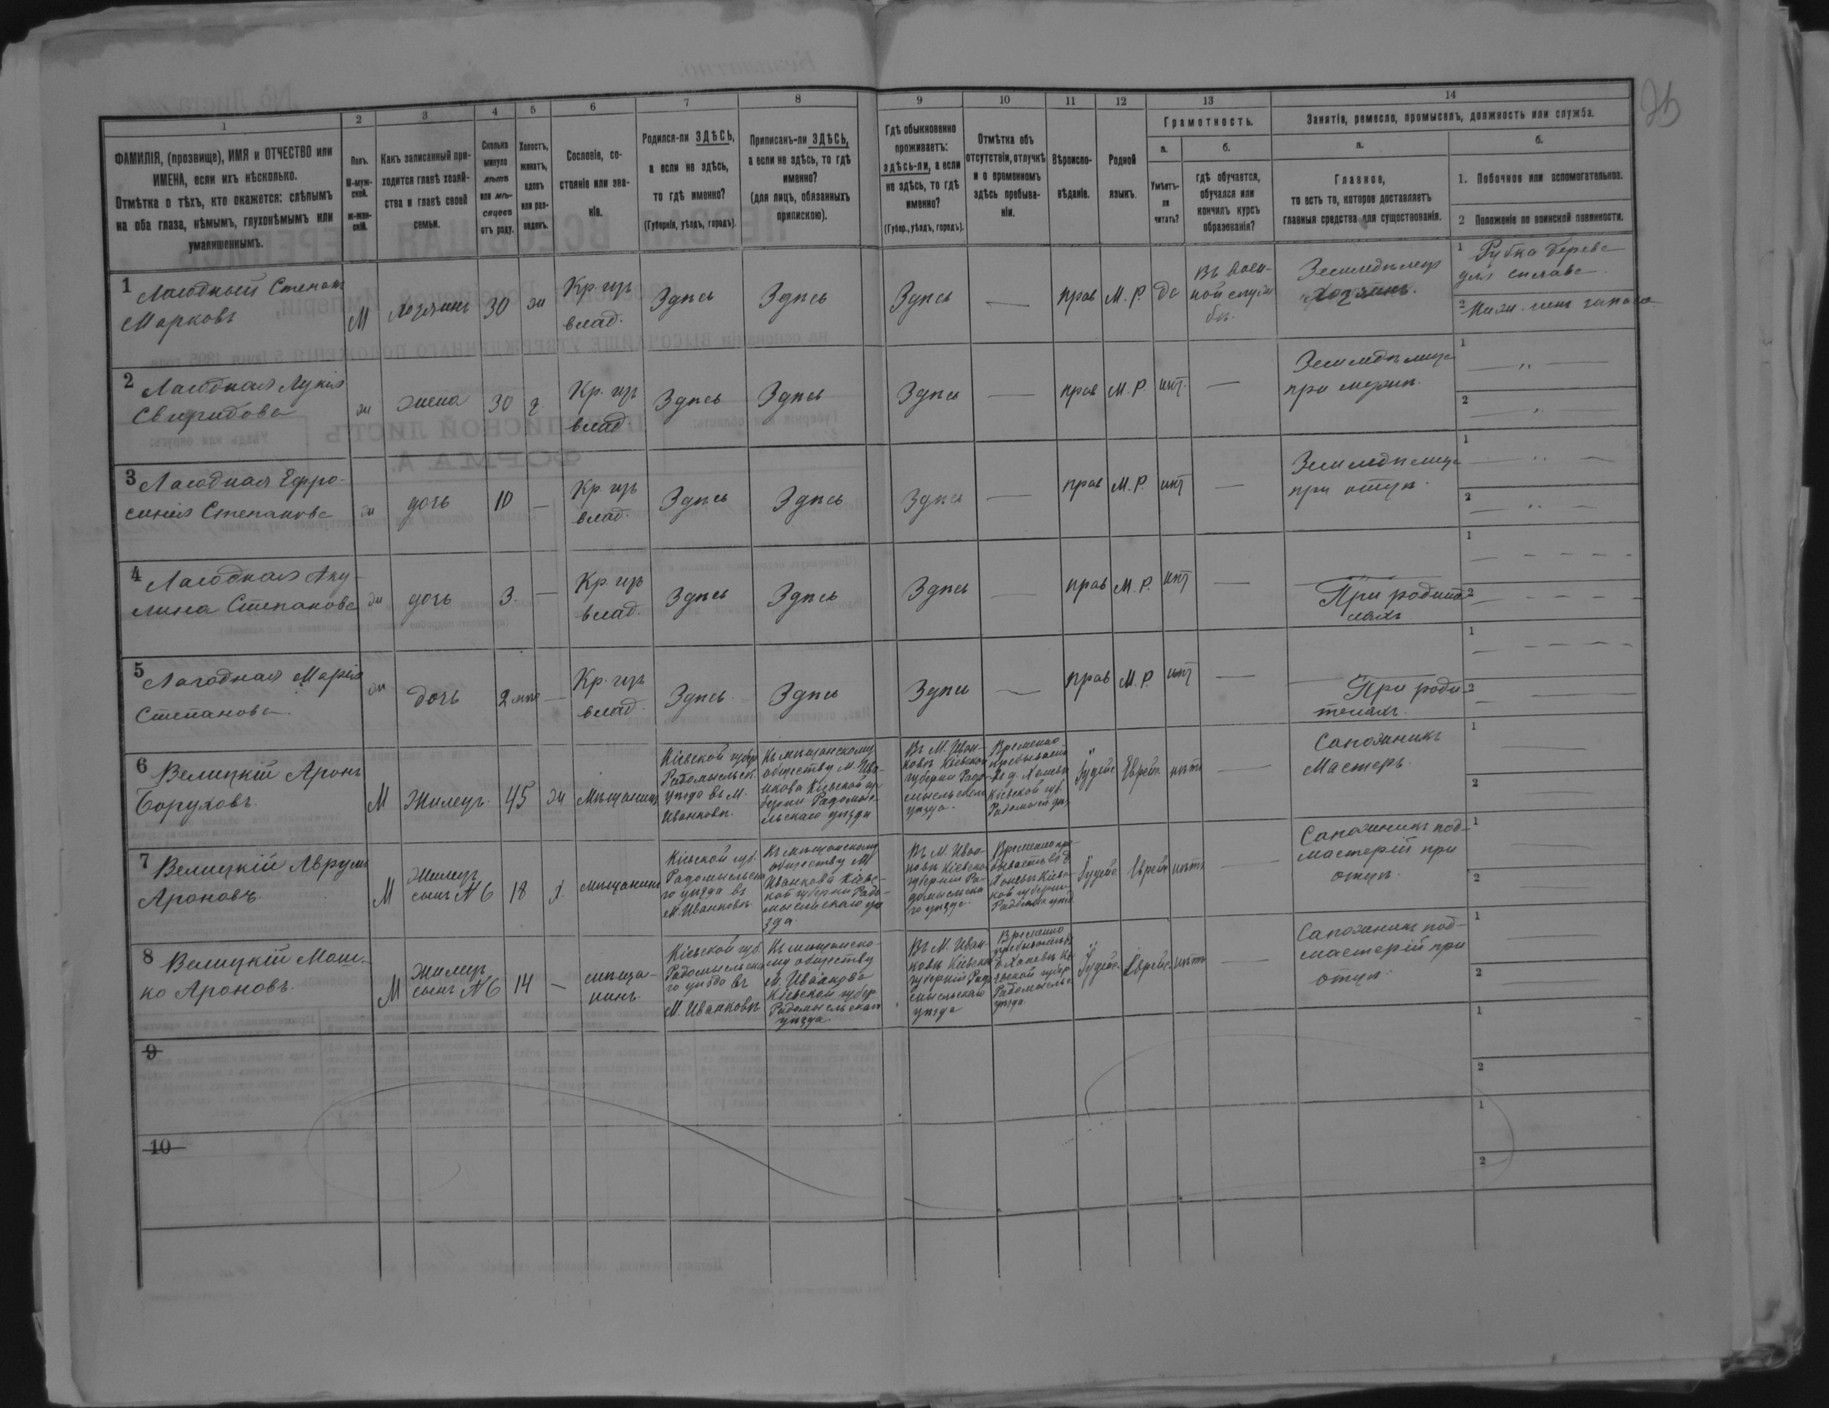 1
2
3
4
5
6
7
8
9
10
11
12
13
14
ФАМИЛІЯ, (прозвище), ИМЯ и ОТЧЕСТВО или
ИМЕНА, если ихъ нѣсколько.
Отмѣтка о тѣхъ, кто окажется: слѣпымъ
на оба глаза, нѣмымъ, глухонѣмымъ или
умалишеннымъ.
Полъ.
М-муж-
ской.
Ж-жен-
скій.
Какъ записанный при-
ходится главѣ хозяй-
ства и главѣ своей
семьи.
Сколько
минуло
лѣтъ
или мѣ-
сяцевъ
отъ роду.
Холостъ,
женатъ,
вдовъ
или раз-
веденъ.
Сословіе, со-
стояніе или зва-
ніе.
Родился-ли ЗДѢСЬ,
а если не здѣсь,
то гдѣ именно?
(Губернія, уѣздъ, городъ).
Приписанъ-ли ЗДѢСЬ,
а если не здѣсь, то гдѣ
именно?
(для лицъ, обязанныхъ
припискою).
Гдѣ обыкновенно
проживаетъ:
здѣсь-ли, а если
не здѣсь, то гдѣ
именно?
(Губер., уѣздъ, городъ).
Отмѣтка объ
отсутствіи, отлучкѣ
и о временномъ
здѣсь пребыва-
ніи.
Вѣроиспо-
вѣданіе.
Родной
языкъ.
Грамотность.
а.
Умѣетъ-
ли
читать?
б.
гдѣ обучается,
обучался или
кончилъ курсъ
образованія?
Занятіе, ремесло, промыселъ, должность или служба.
а.
Главное,
то есть то, которое доставляетъ
главныя средства для существованія.
б.
1. Побочное или вспомогательное.
2 Положеніе по воинской повинности.
1 Лагодный Степанъ
Марковъ
М
хозяинъ
30
ж
Кр. изъ
влад.
Здѣсь
Здѣсь
Здѣсь
—
прав
М. Р.
да
Въ воен-
ной служ
бѣ.
Земледѣлецъ
хозяинъ.
1 Рубка дерева
для сплава
2
2 Лагодная Лукія
Свиридова
ж
жена
30
з
Кр. изъ
влад.
Здѣсь
Здѣсь
Здѣсь
—
прав
М. Р.
нѣт.
—
Земледѣлица
при мужѣ.
1 — " —
2 — " —
3 Лагодная Ефро-
синія Степанова
ж
дочь
10
—
Кр. изъ
влад.
Здѣсь
Здѣсь
Здѣсь
—
прав
М. Р.
нѣт
—
Земледѣлица
при отцѣ.
1 — " —
2 — " —
4 Лагодная Аку-
лина Степанова
ж
дочь
3
—
Кр. изъ
влад.
Здѣсь
Здѣсь
Здѣсь
—
прав
М. Р.
нѣт
—
При родите
ляхъ
1 — — — —
2 — — — —
5 Лагодная Марія
Степанова.
ж
дочь
2 мѣс
—
Кр. изъ
влад.
Здѣсь.
Здѣсь
Здѣсь
—
прав
М. Р.
нѣт
—
При роди
теляхъ.
1 — — — —
2 —
6 Велицкій Аронъ
Боруховъ.
М
Жилецъ.
45
ж
Мѣщанинъ
Кіевской губер
Радомысльск
уѣзда въ М.
Иванковѣ.
Къ мѣщанскому
обществу М. Ива-
нкова Кіевской гу-
берніи Радомы-
льскаго уѣзда
Въ М. Иван-
ковѣ Кіевской
губерніи Радо-
мысльскаго
уѣзда.
Временно
пребываетъ
Кіевской губ.
Іудейс
Еврейс
нѣтъ
—
Сапожникъ
Мастеръ.
1 —
2
7 Велицкій Аврумъ
Ароновъ.
М
Жилецъ
сынъ № 6
18
х.
мѣщанинъ
Кіевской губ.
Радомысльска
го уѣзда въ
М. Иванковѣ.
Къ мѣщанскому
обществу М.
Иванкова Кіевс-
кой губерніи Радо-
мысльскаго уѣ
зда.
Въ М. Иван-
ковѣ Кіевско
губерніи Ра-
домысльска
го уѣзда.
Временно пре-
бываетъ
Іудейс
Еврейс
нѣтъ
—
Сапожникъ под-
мастерій при
отцѣ.
1 —
2 —
8 Велицкій Мош-
ко Ароновъ.
М
Жилецъ
сынъ № 6
14
—
мѣща-
нинъ.
Кіевской губ.
Радомысльска
го уѣзда въ
М. Иванковѣ
Къ мѣщанско-
му обществу
М. Иванкова
Кіевской губер
Радомысльскаго
уѣзда.
Въ М. Иван-
ковѣ Кіевско
губерніи Радо
мысльскаго
уѣзда
Временно
пребываетъ
Радомысльс
уѣзда.
Іудейс
Еврейс
нѣтъ
—
Сапожникъ под-
мастерій при
отцѣ.
1 —
2 —
9
1
2
10
1
2